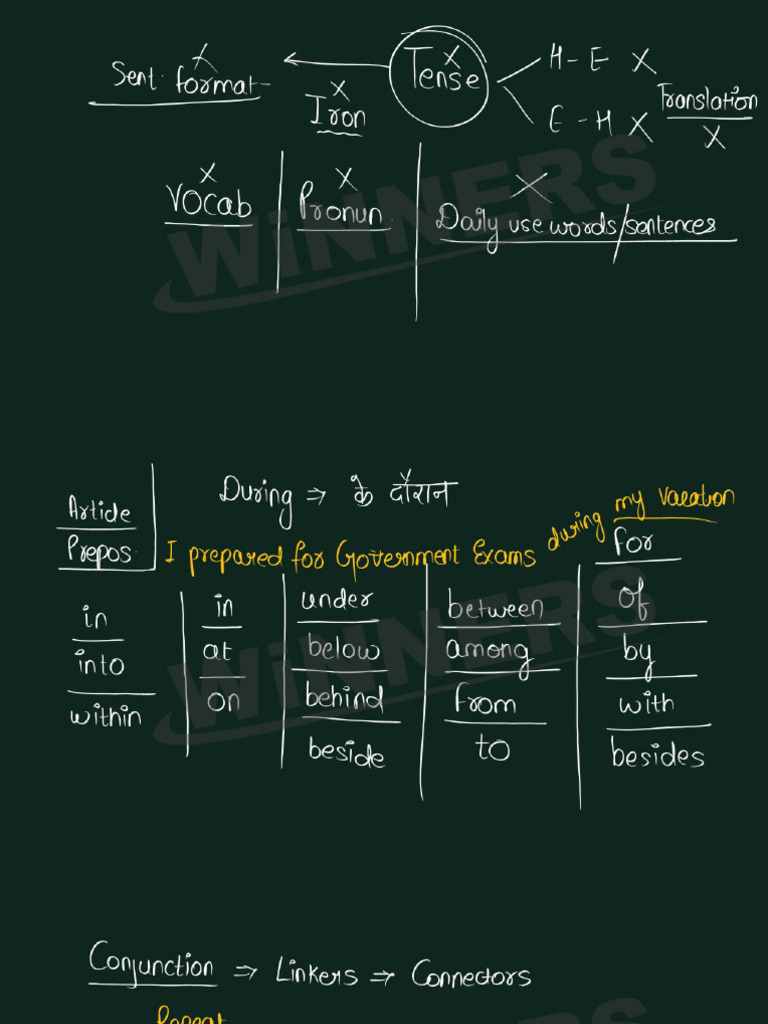 Sent. format ← Tense H-E X
X X
Iron X E-H X Translation X
Vocab X | Pronun. X | Daily use words/sentences X
WiNNERS
During ⇒ के दौरान
Article
Prepos.
I prepared for Government Exams during my vacation.
in | in | under | between | for
into | at | below | among | of
within | on | behind | from | by
beside | to | with
besides
WiNNERS
Conjunction ⇒ Linkers ⇒ Connectors
Repeat